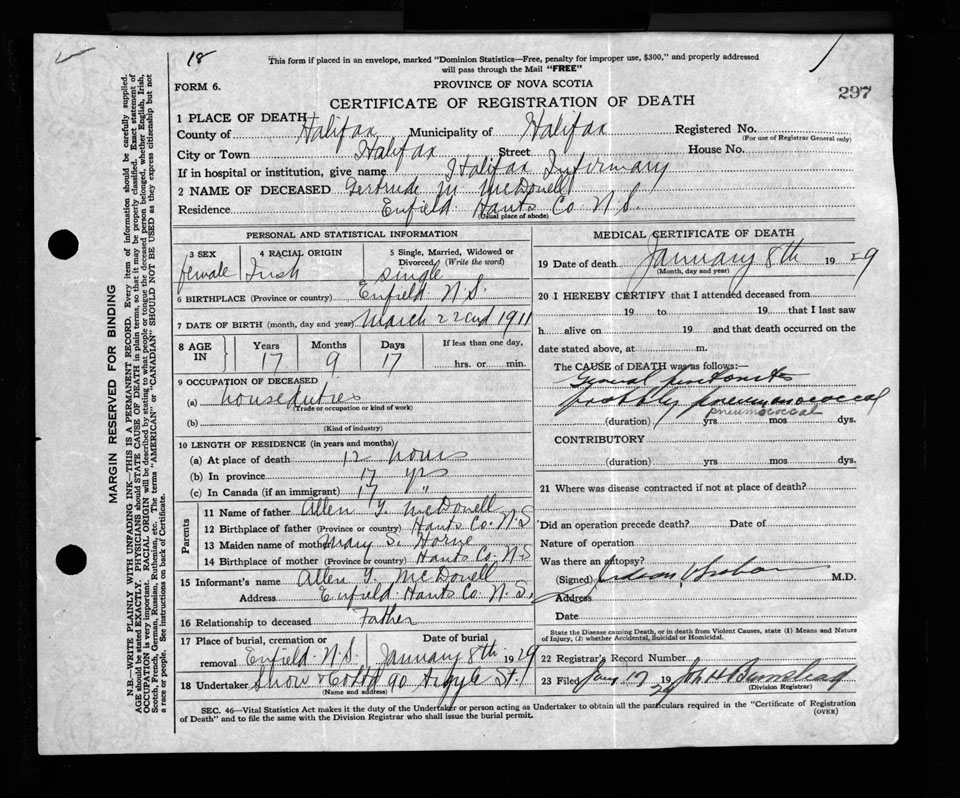 18
This form if placed in an envelope, marked "Dominion Statistics—Free, penalty for improper use, $300," and properly addressed
will pass through the Mail "FREE"
FORM 6.
PROVINCE OF NOVA SCOTIA
297
CERTIFICATE OF REGISTRATION OF DEATH
1 PLACE OF DEATH
County of Halifax Municipality of Halifax Registered No.
(For use of Registrar General only)
City or Town Halifax Street House No.
If in hospital or institution, give name Halifax Infirmary
2 NAME OF DECEASED Gertrude M McDonell
Residence Enfield Hants Co N.S.
(Usual place of abode)
PERSONAL AND STATISTICAL INFORMATION
3 SEX female
4 RACIAL ORIGIN Irish
5 Single, Married, Widowed or Divorced, (Write the word) single
6 BIRTHPLACE (Province or country) Enfield N.S.
7 DATE OF BIRTH (month, day and year) March 22nd 1911
8 AGE IN Years 17 Months 9 Days 17 If less than one day, hrs. or min.
9 OCCUPATION OF DECEASED
(a) houseduties
(Trade or occupation or kind of work)
(b)
(Kind of industry)
10 LENGTH OF RESIDENCE (in years and months)
(a) At place of death 12 hours
(b) In province 17 yrs
(c) In Canada (if an immigrant) 17 "
Parents
11 Name of father Allen Y. McDonell
12 Birthplace of father (Province or country) Hants Co. N.S
13 Maiden name of mother Mary S. Horne
14 Birthplace of mother (Province or country) Hants Co. N.S
15 Informant's name Allen Y. McDonell
Address Enfield Hants Co N.S.
16 Relationship to deceased Father
17 Place of burial, cremation or removal Enfield N.S. Date of burial January 8th 1929
18 Undertaker Snow & Co Ltd 90 Argyle St.
(Name and address)
MEDICAL CERTIFICATE OF DEATH
19 Date of death January 8th 1929
(Month, day and year)
20 I HEREBY CERTIFY that I attended deceased from
19 to 19 that I last saw
h alive on 19 and that death occurred on the
date stated above, at m.
The CAUSE OF DEATH was as follows:—
General peritonitis
possibly pneumonococcal
pneumococcal
(duration) yrs mos dys.
CONTRIBUTORY
(duration) yrs mos dys.
21 Where was disease contracted if not at place of death?
Did an operation precede death? Date of
Nature of operation
Was there an autopsy?
(Signed) M.D.
Address
Date
State the Disease causing Death, or in death from Violent Causes, state (1) Means and Nature
of Injury, (2) whether Accidental, Suicidal or Homicidal.
22 Registrar's Record Number
23 Filed Jan 17 1929
(Division Registrar)
SEC. 46—Vital Statistics Act makes it the duty of the Undertaker or person acting as Undertaker to obtain all the particulars required in the "Certificate of Registration
of Death" and to file the same with the Division Registrar who shall issue the burial permit.
(OVER)
MARGIN RESERVED FOR BINDING
N.B.—WRITE PLAINLY WITH UNFADING INK—THIS IS A PERMANENT RECORD. Every item of information should be carefully supplied.
AGE should be stated EXACTLY. PHYSICIANS should STATE CAUSE OF DEATH in plain terms, so that it may be properly classified. Exact statement of
OCCUPATION is very important. RACIAL ORIGIN will be described by stating to what people or tongue the deceased person belonged, whether English, Irish,
Scotch, French, German, Russian, Ruthenian, etc. The terms "AMERICAN" or "CANADIAN" SHOULD NOT BE USED as they express citizenship but not
a race or people. See instructions on back of Certificate.